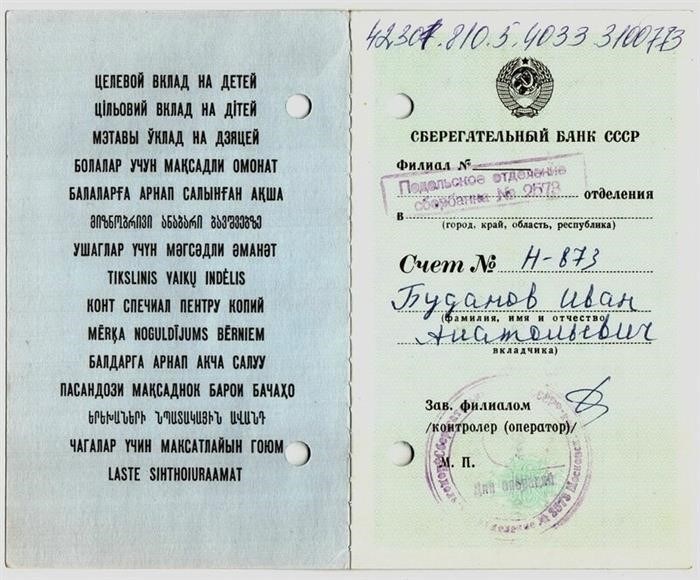 ЦЕЛЕВОЙ ВКЛАД НА ДЕТЕЙ
ЦІЛЬОВИЙ ВКЛАД НА ДІТЕЙ
МЭТАВЫ ЎКЛАД НА ДЗЯЦЕЙ
БОЛАЛАР УЧУН МАҚСАДЛИ ОМОНАТ
БАЛАЛАРҒА АРНАП САЛЫНҒАН АҚША
ᲛᲘᲖᲜᲝᲑᲠᲘᲕᲘ ᲐᲜᲐᲑᲐᲠᲘ ᲑᲐᲕᲨᲕᲔᲑᲖᲔ
УШАГЛАР ҮЧҮН МӘГСӘДЛИ ӘМАНӘТ
TIKSLINIS VAIKŲ INDĖLIS
КОНТ СПЕЧИАЛ ПЕНТРУ КОПИЙ
MĒRĶA NOGULDĪJUMS BĒRNIEM
БАЛДАРГА АРНАП АКЧА САЛУУ
ПАСАНДОЗИ МАҚСАДНОК БАРОИ БАЧАҲО
ԵՐԵԽԱՆԵՐԻ ՆՊԱՏԱԿԱՅԻՆ ԱՎԱՆԴ
ЧАГАЛАР ҮЧИН МАКСАТЛАЙЫН ГОЮМ
LASTE SIHTHOIURAAMAT
42307.810.5.4033 3100773
СБЕРЕГАТЕЛЬНЫЙ БАНК СССР
Филиал №
Подольское отделение
сбербанка № 2573
отделения
в
(город, край, область, республика)
Счет № Н-873
Буданов Иван
(фамилия, имя и отчество
Анатольевич
вкладчика)
Зав. филиалом
/контролер (оператор)/
М. П.
Для операций
№ 2573 Московск